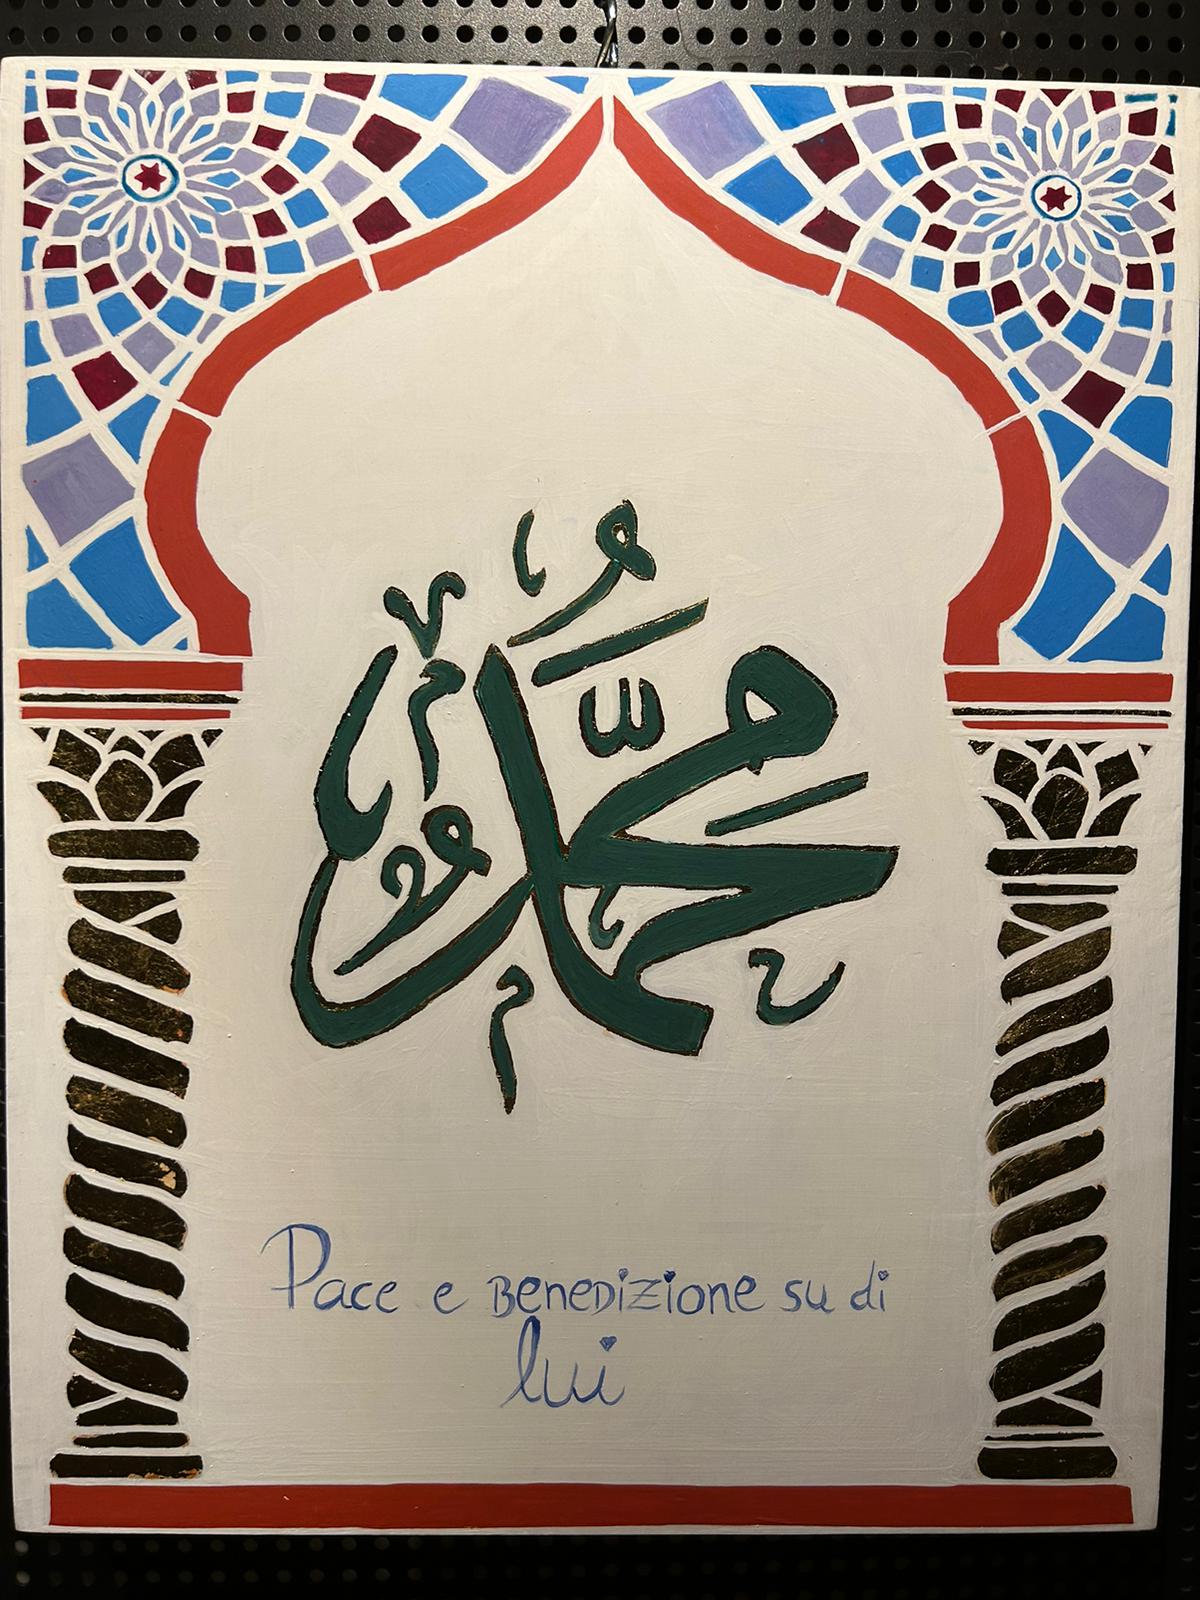 مُحَمَّدٌ
Pace e Benedizione su di
lui